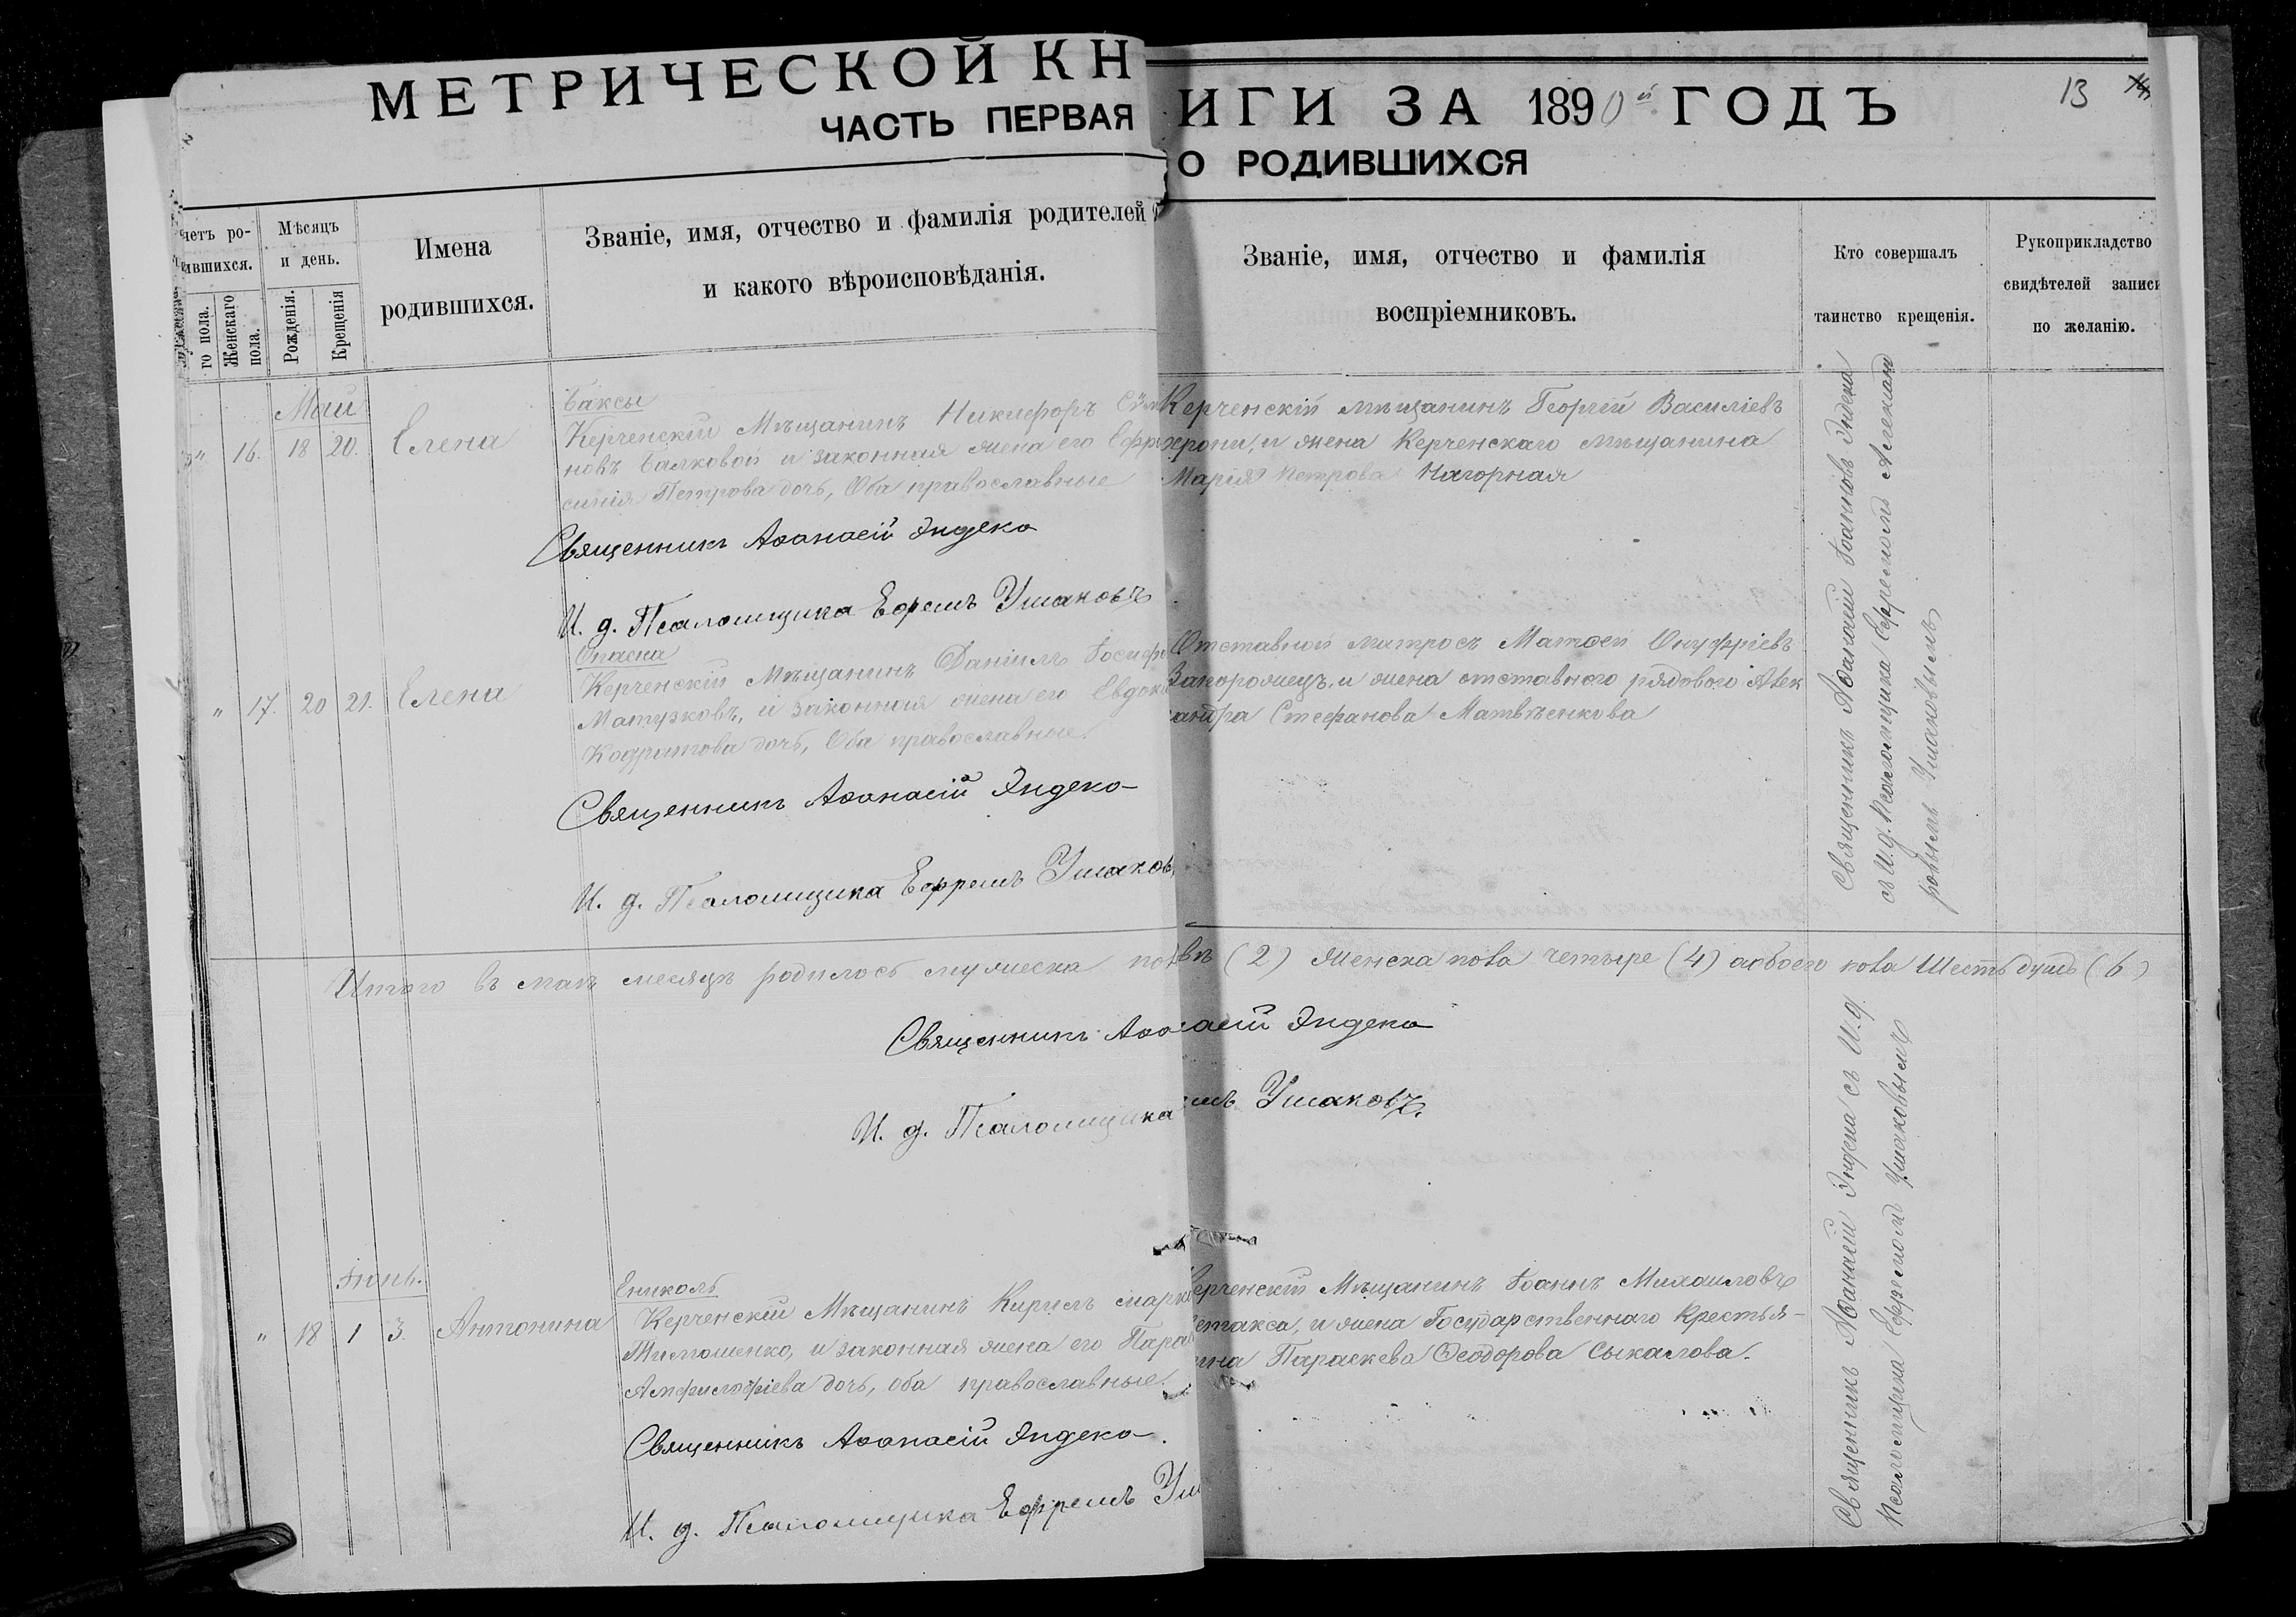 МЕТРИЧЕСКОЙ КНИГИ ЗА 1890й ГОДЪ
13
ЧАСТЬ ПЕРВАЯ О РОДИВШИХСЯ
четъ ро-
ившихся.
го пола.
Женскаго пола.
Мѣсяцъ и день.
Рожденія.
Крещенія
Имена родившихся.
Званіе, имя, отчество и фамилія родителей
и какого вѣроисповѣданія.
Званіе, имя, отчество и фамилія
воспріемниковъ.
Кто совершалъ
таинство крещенія.
Рукоприкладство
свидѣтелей записи
по желанію.
Май
" 16. 18 20. Елена
Баксы
Керченскій Мѣщанинъ Никифоръ
новъ Балковой и законная жена его Ефро
синія Петрова дочь, Оба православные
Священникъ Аѳанасій Эндека
И. д. Псаломщика Ефремъ Ушаковъ
Керченскій мѣщанинъ Георгій Василіевъ
и жена Керченскаго мѣщанина
Марія Петрова Нагорная
Священникъ Аѳанасій Іоанновъ Эндека
съ И. д. Псаломщика Ефремомъ Александ
ровымъ Ушаковымъ
" 17. 20 21. Елена
Опасна
Керченскій Мѣщанинъ Даніилъ Іосифо
Матузковъ, и законная жена его Евдок
Кодратова дочь, Оба православные.
Священникъ Аѳанасій Эндека
И. д. Псаломщика Ефремъ Ушаков
Отставной матросъ Матѳей Онуфріевъ
Запорожецъ, и жена отставного рядового Алек
сандра Стефанова Матвѣенкова
Итого въ маѣ месяцѣ родилось мужеска пола двѣ (2) женска пола четыре (4) а обоего пола Шесть душъ (6)
Священникъ Аѳанасій Эндека
И. д. Псаломщика мъ Ушаковъ.
Іюнь.
" 18 1 3. Антонина
Ениколь
Керченскій Мѣщанинъ Кирилъ марк
Тимошенко, и законная жена его Пара
Амфилофіева дочь, оба православные.
Священникъ Аѳанасій Эндека.
И. д. Псаломщика Ефремъ Уш
ерченскій Мѣщанинъ Іоаннъ Михаиловъ
етакса, и жена Государственнаго Крестья-
ина Параскева Ѳеодорова Сыкалова.
Священникъ Аѳанасій Эндека съ И. д.
Псаломщика Ефремомъ Ушаковымъ